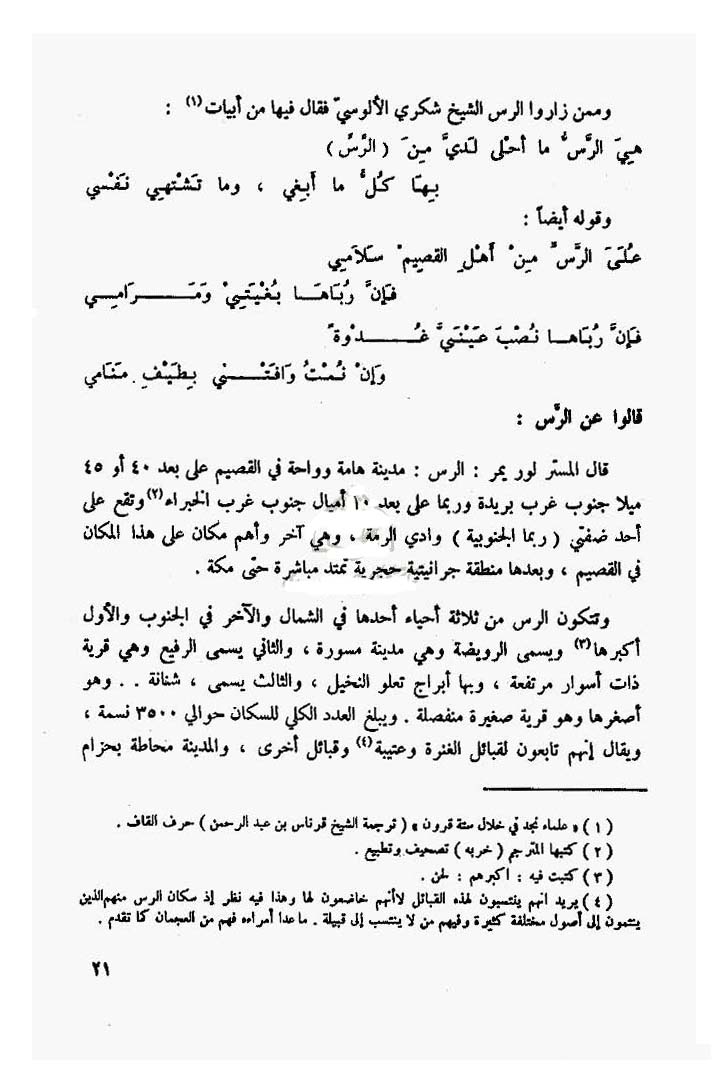 وممن زاروا الرس الشيخ شكري الألوسيّ فقال فيها من أبيات (١) :
هِيَ الرَّسُّ ما أحْلى لَديَّ مِنَ ( الرَّسِّ )
بِهَا كُلُّ ما أَبغي ، وما تَشْتهي نَفْسي
وقوله أيضاً :
عُلَىَ الرَّسِّ مِنْ أَهْلِ القصِيمْ سَلَامِيي
فَإنَّ رُبَاهَا بُغْيَتِيْ وَمَرامِي
فَإنَّ رُبَاها نُصْبَ عَيْنَيَّ غُدْوةً
وَإنْ نُمْتُ وَافَتْني بِطَيْفِ مَنَامي
قالوا عن الرَّس :
قال المستر لور يمر : الرس : مدينة هامة وواحة في القصيم على بعد ٤٠ أو ٤٥
ميلا جنوب غرب بريدة وربما على بعد ١٠ أميال جنوب غرب الخبراء (٢) وتقع على
أحد ضفتي ( ربما الجنوبية ) وادي الرمة ، وهي آخر وأهم مكان على هذا المكان
في القصيم ، وبعدها منطقة جرانيتية حجرية تمتد مباشرة حتى مكة .
وتتكون الرس من ثلاثة أحياء أحدها في الشمال والآخر في الجنوب والأول
أكبرها (٣) ويسمى الرويضة وهي مدينة مسورة ، والثاني يسمى الرفيع وهي قرية
ذات أسوار مرتفعة ، وبها أبراج تعلو النخيل ، والثالث يسمى ، شنانة . . وهو
أصغرها وهو قرية صغيرة منفصلة . ويبلغ العدد الكلي للسكان حوالي ٣٥٠٠ نسمة ،
ويقال إنهم تابعون لقبائل العنزة وعتيبة (٤) وقبائل أخرى ، والمدينة محاطة بحزام
( ١ ) « علماء نجد في خلال ستة قرون » ( ترجمة الشيخ قرناس بن عبد الرحمن ) حرف القاف .
( ٢ ) كتبها المترجم ( خربه ) تصحيف وتطبيع .
( ٣ ) كتبت فيه : اكبرهم : لحن .
( ٤ ) يريد انهم ينتسبون لهذه القبائل لاأنهم خاضعون لها وهذا فيه نظر إذ سكان الرس منهم الذين
ينتمون إلى أصول مختلفة كثيرة وفيهم من لا ينتسب إلى قبيلة . ماعدا أمراءه فهم من العجمان كما تقدم .
٢١